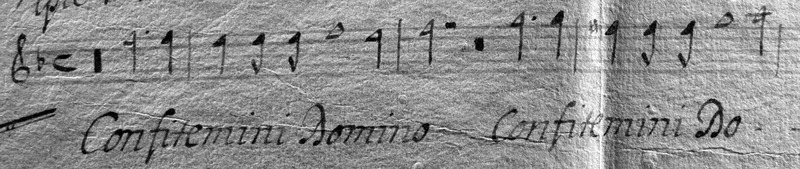 Confitemini Domino Confitemini Do